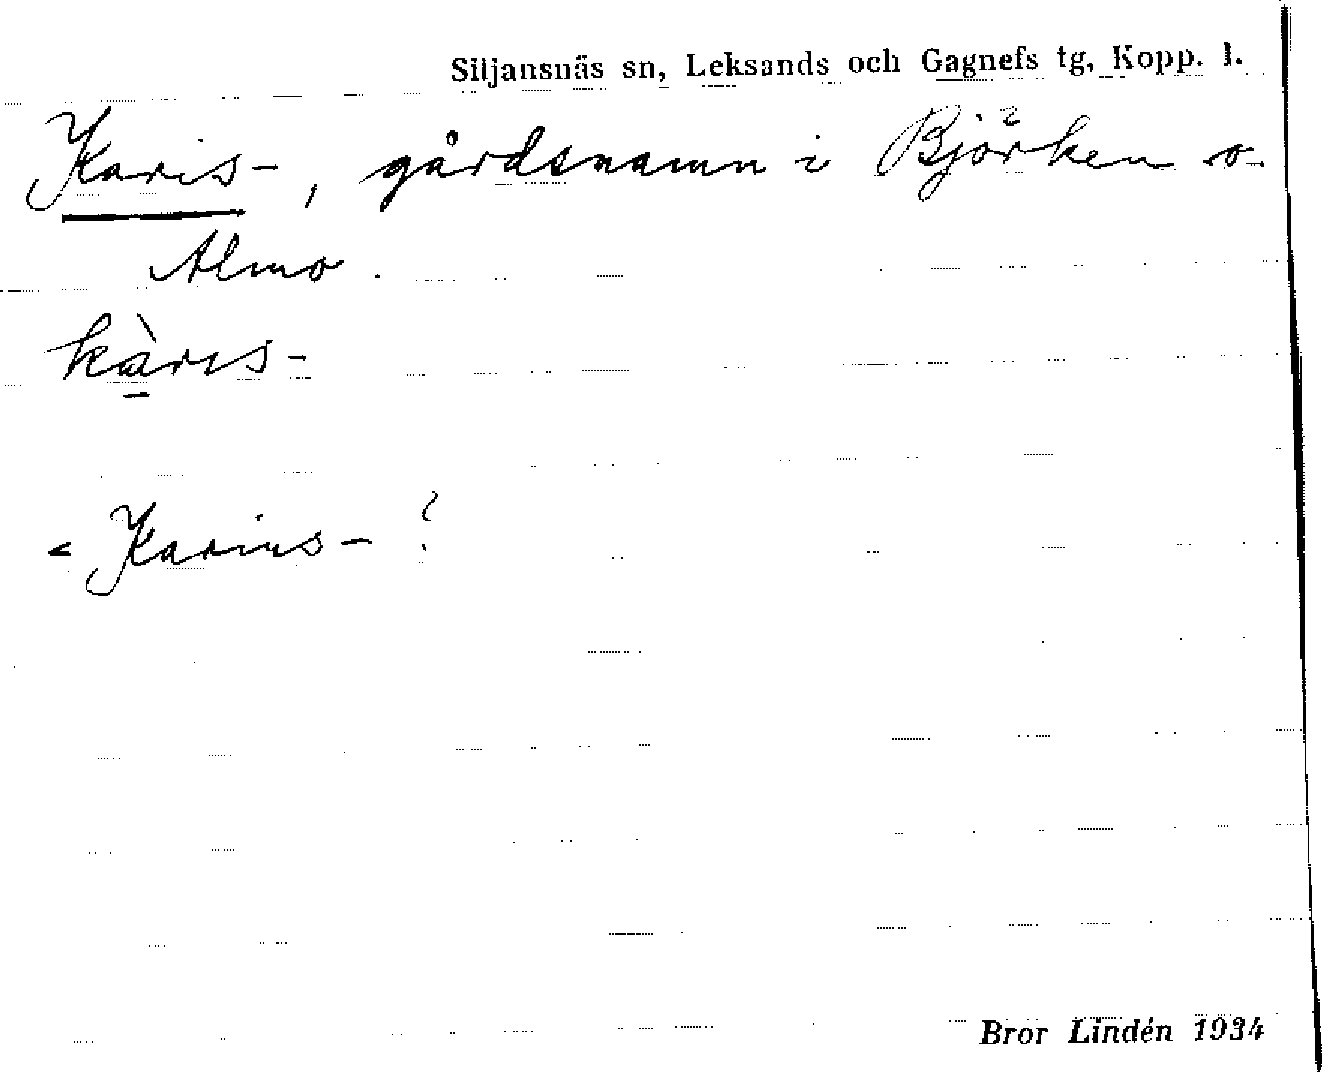 Siljansnäs sn, Leksands och Gagnefs tg, Kopp. l.
Karis-, gårdsnamn i Björken o
Almo.
kàrıs-
< Karins- ?
Bror Lindén 1934